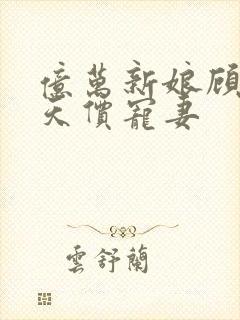 億萬新娘顾
天價寵妻
雲舒蘭